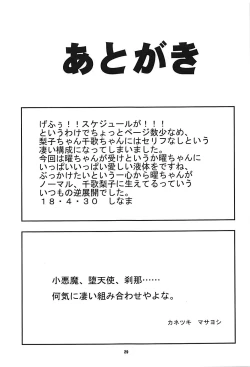 あとがき
げふぅ！！スケジュールが！！！
というわけでちょっとページ数少なめ、
梨子ちゃん千歌ちゃんにはセリフなしという
凄い構成になってしまいました。
今回は曜ちゃんが受けというか曜ちゃんに
いっぱいいっぱい愛しい液体をですね、
ぶっかけたいという一心から曜ちゃんが
ノーマル、千歌梨子に生えてるっていう
いつもの逆展開でした。
１８・４・３０　しなま
小悪魔、堕天使、刹那……
何気に凄い組み合わせやよな。
カネツキ　マサヨシ